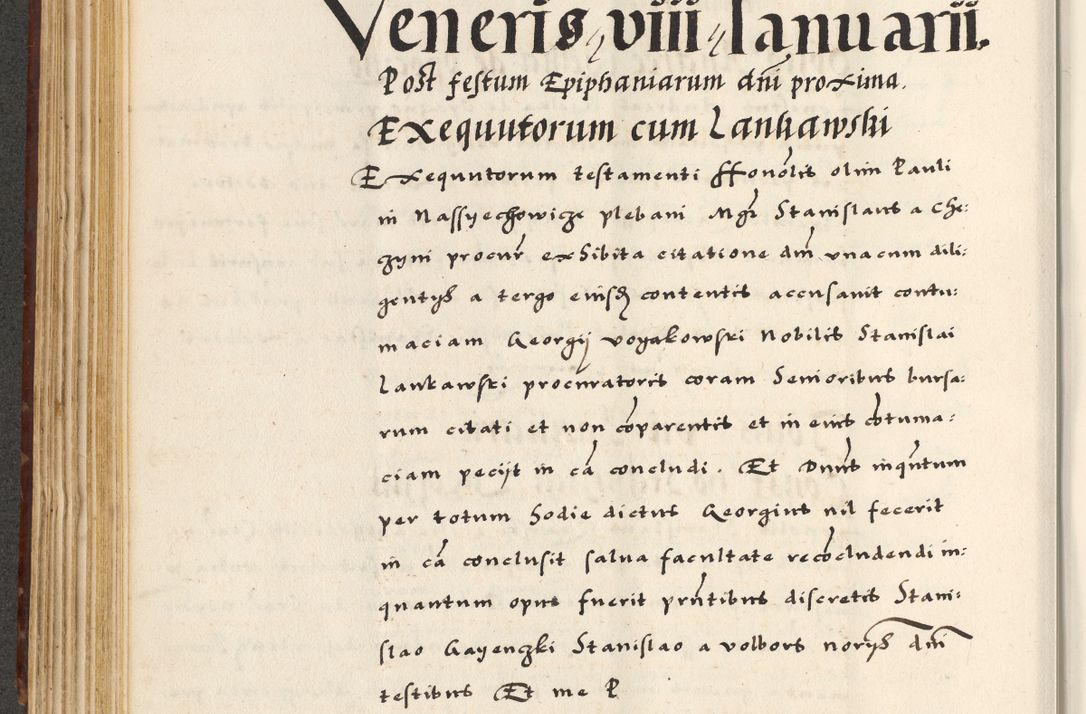 Veneris viii Ianuarii.
Post festum Epiphaniarum dni proxima.
Exequutorum cum Lankawski
Exequutorum testamenti Honolis olim Pauli
in Nassyechowicze plebani Mgr Stanislaus a Che:
zyni procur exhibita citatione dm vnacum dili:
gentys a tergo eiusd contentis accusauit contu:
maciam Georgij voyakowski Nobilis Stanislai
Lankawski procuratoris coram Senioribus bursa:
rum citati et non comparentis et in eius cotuma:
ciam pecijt in ca concludi. Et Dnus inqntum
per totum hodie dictus Georgius nil fecerit
in ca conclusit salua facultate recocludendi in:
quantum opus fuerit prntibus discretis Stani:
slao Gayenczki Stanislao a volbors norys dni
testibus Et me P